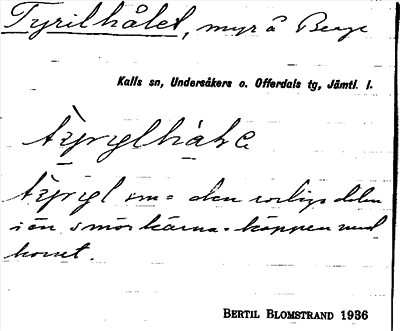 Tyrilhålet, myr å Berge
Kalls sn, Undersåkers o. Offerdals tg, Jämtl. l.
typylhålẹ
typyl sm = den rörliga delen
i en smörkärna = käppen med
korset.
BERTIL BLOMSTRAND 1936